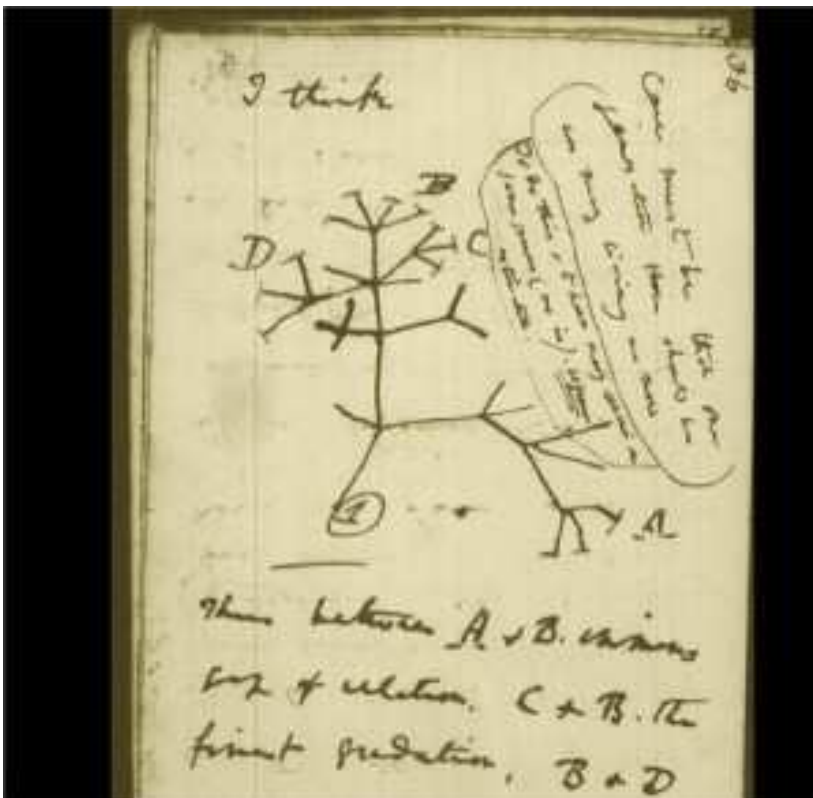 36
I think
Case must be that one
generation then should be
as many living as now
To do this & to have many species in
same genus (as is). requires
extinction.
B
C
D
A
1
Thus between A & B. immense
gap of relation. C & B. the
finest gradation, B & D